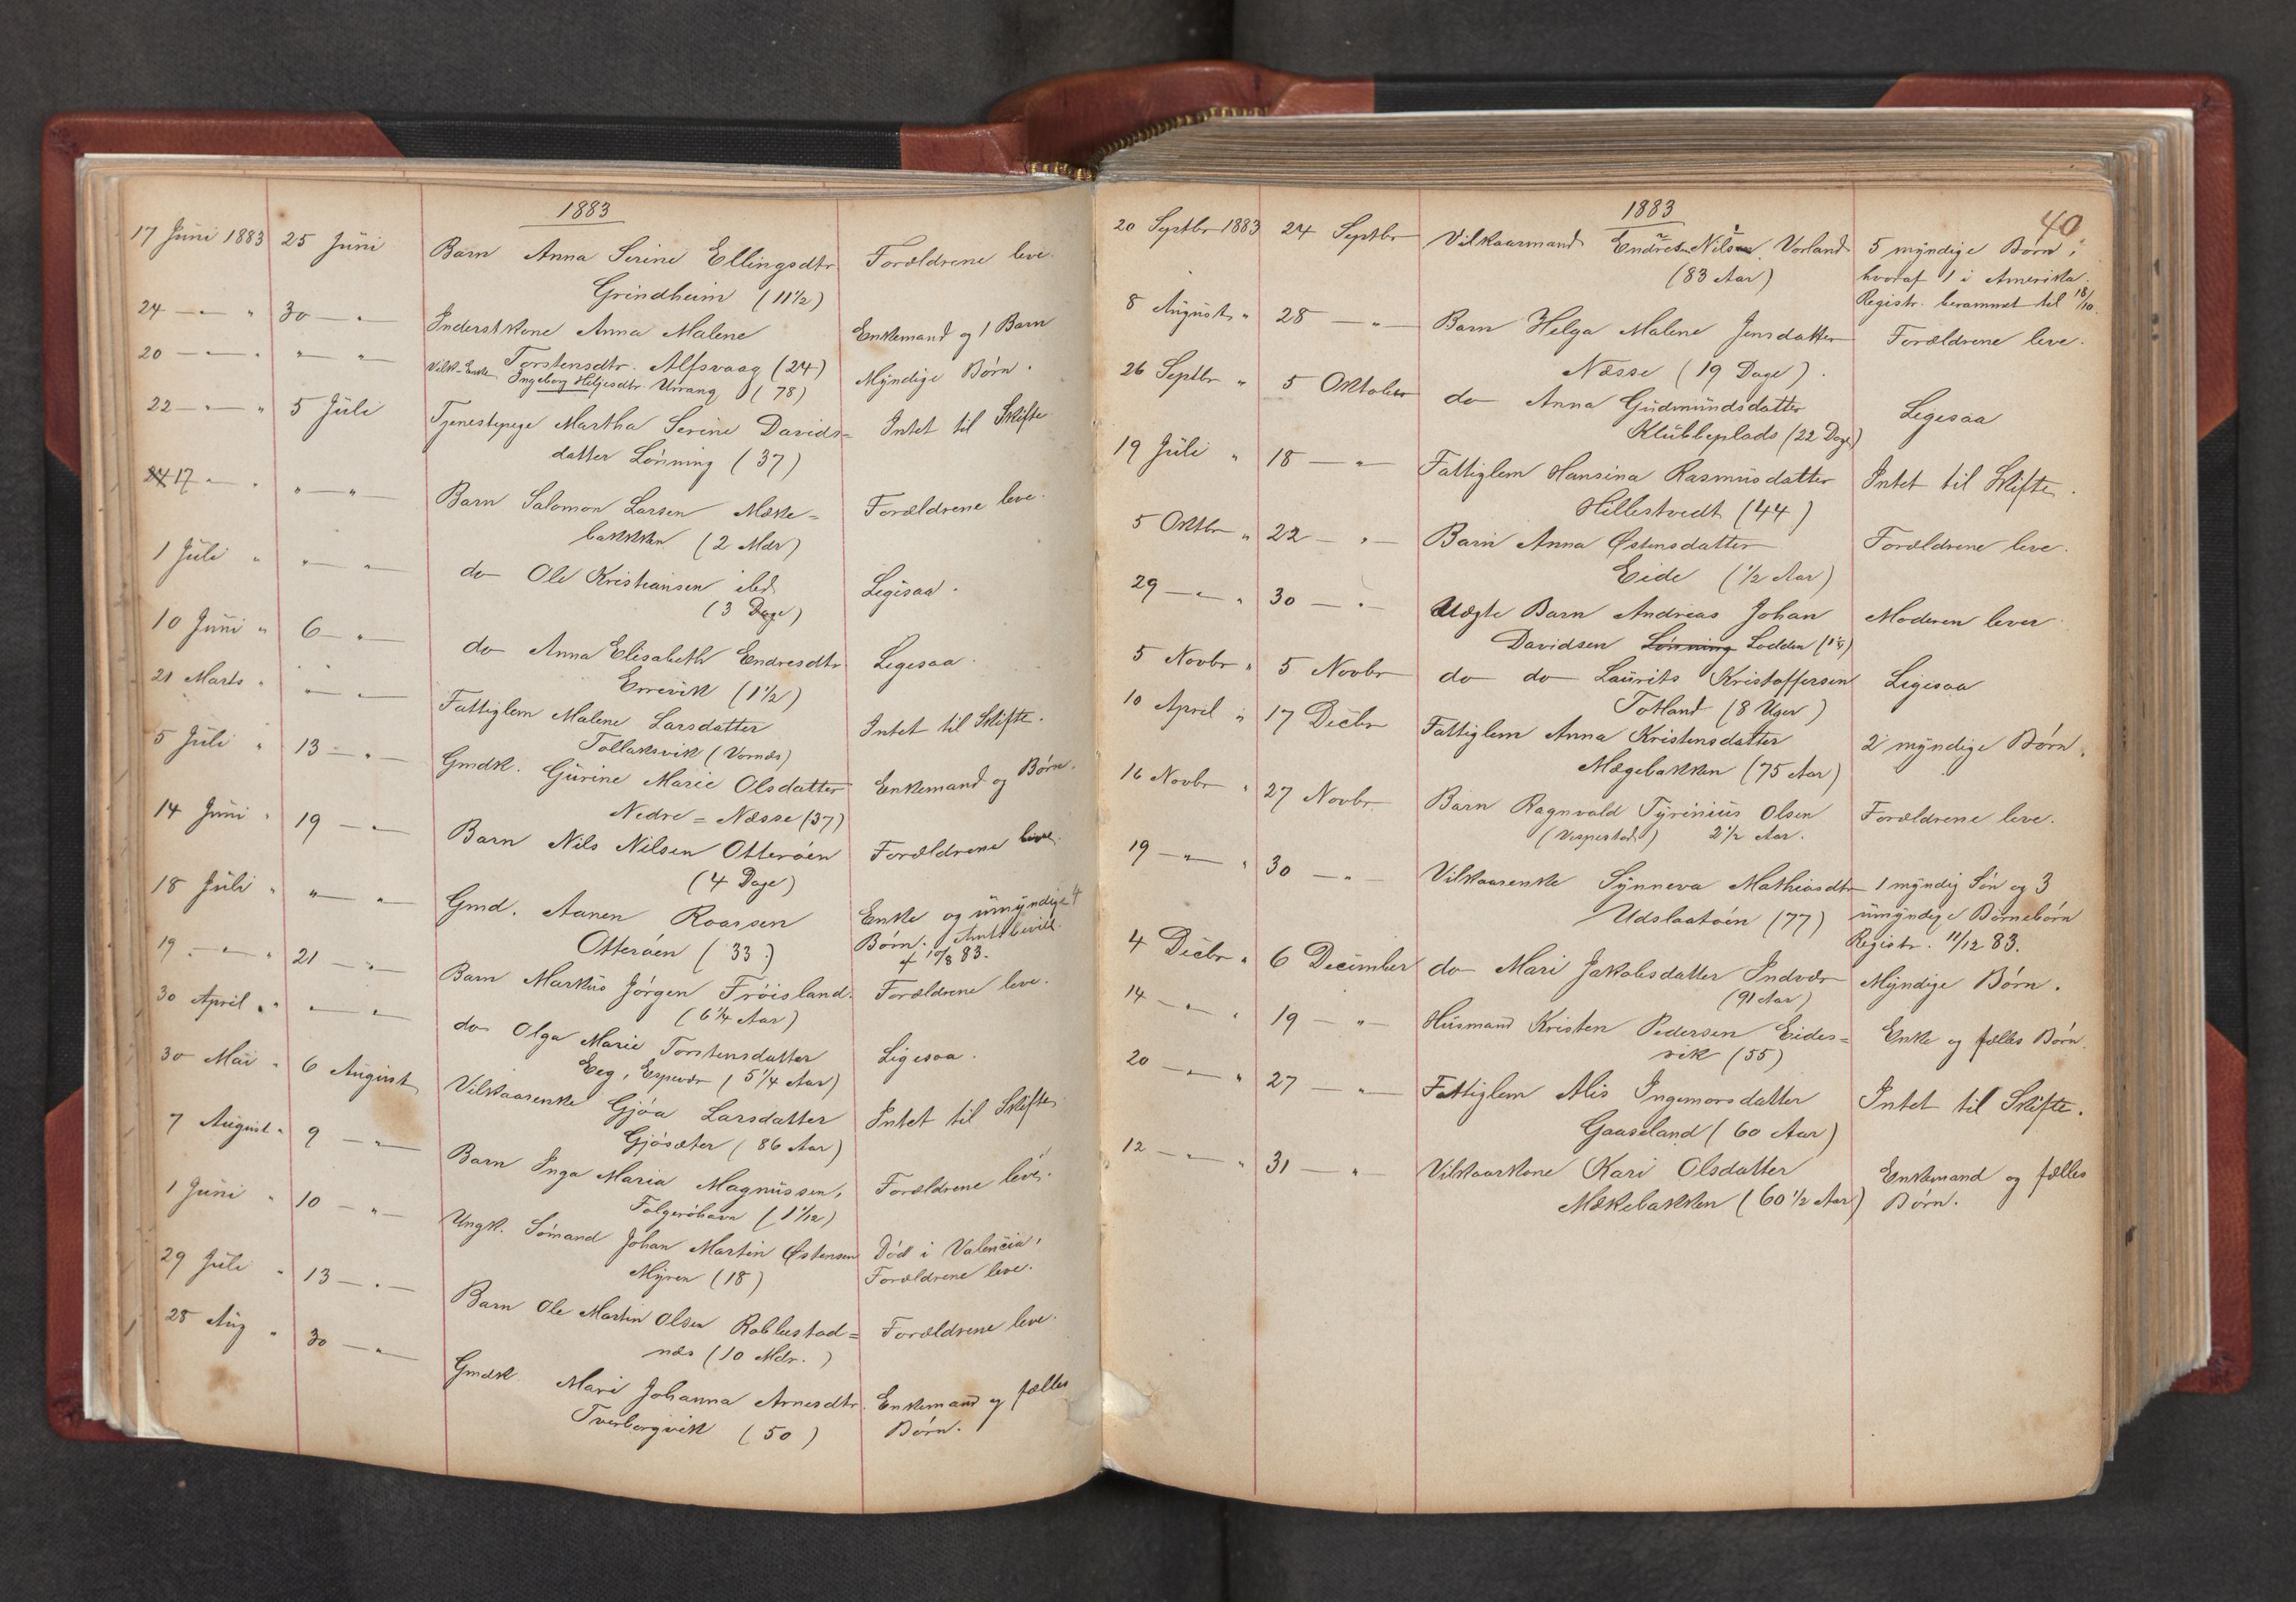 1883
17 Juni 1883 25 Juni Barn Anna Serine Ellingsdtr Forældrene leve.
Grindheim (11½)
24 — „ — „ 30 — „ Inderstkone Anna Malene Enkemand og 1 Barn
Torstensdtr. Alfsvaag (24)
20 — „ — „ „ — „ — Vilk. Enke Ingeborg Heljesdtr. Urrang (78) Myndige Børn.
22 — „ — „ 5 Juli Tjenestepige Martha Serine Davids= Intet til Skifte
datter Lønning (37)
17 — „ „ — „ — Barn Salomon Larsen Mæke= Forældrene leve.
bakken (2 Mdr)
1 Juli „ „ — „ — do Ole Kristiansen ibd. Ligesaa.
(3 Dage)
10 Juni „ 6 — „ — do Anna Elisabeth Endresdtr Ligesaa.
Errevik (1½)
21 Marts „ „ — „ — Fattiglem Malene Larsdatter Intet til Skifte.
Tollaksvik (Vornæs)
5 Juli „ 13 — „ — Gmdk. Gurine Marie Olsdatter Enkemand og Børn.
Nedre = Næsse (37)
14 Juni „ 19 — „ — Barn Nils Nilsen Otterøen Forældrene leve.
(4 Dage)
18 Juli „ „ — „ — Gmd. Aanen Roarsen Enke og umyndige 4
Otterøen (33) Børn. Amtsbevill.
10/8 83.
19 — „ — „ 21 — „ — Barn Markus Jørgen Frøisland. Forældrene leve.
(6¼ Aar)
30 April „ „ — „ — do Olga Marie Torstensdatter Ligesaa.
Eeg, Espevær (5¼ Aar)
30 Mai „ 6 August Vilkaarsenke Gjøa Larsdatter Intet til Skifte
Gjøsæter (86 Aar)
7 August „ 9 — „ — Barn Inga Maria Magnussen, Forældrene leve.
Folgerøhavn (1 1/12)
1 Juni „ 10 — „ — Ungk. Sømand Johan Martin Østensen Død i Valencia,
Myren (18) Forældrene leve.
29 Juli „ 13 — „ — Barn Ole Martin Olsen Rabbestad= Forældrene leve.
næs (10 Mdr.)
28 Aug „ 30 — „ — Gmdk. Mari Johanna Arnesdtr. Enkemand og fælles
Tverborgvik (50) Børn.
40
1883
20 Septbr 1883 24 Septbr Vilkaarmand Endre Nilsen Vorland 5 myndige Børn,
(83 Aar) hvoraf 1 i Amerika.
Registr. berammet til 18/10.
8 August „ 28 — „ — Barn Helga Malene Jensdatter Forældrene leve.
Næsse (19 Dage).
26 Septbr „ 5 Oktober do Anna Gudmundsdatter Ligesaa
Klubbeplads (22 Dage)
19 Juli „ 18 — „ Fattiglem Hansina Rasmusdatter Intet til Skifte.
Hillestvedt (44)
5 Oktbr „ 22 — „ — Barn Anna Østensdatter Forældrene leve.
Eide (½ Aar)
29 — „ — „ 30 — „ — Uægte Barn Andreas Johan Moderen lever
Davidsen Lønning Lodden
5 Novbr „ 5 Novbr do do Laurits Kristoffersen Ligesaa
Totland (8 Uger)
10 April „ 17 Decbr Fattiglem Anna Kristensdatter 2 myndige Børn.
Mægebakken (75 Aar)
16 Novbr „ 27 Novbr Barn Ragnvald Tyrinius Olsen Forældrene leve.
(Vespestad) 2½ Aar.
19 — „ — „ 30 — „ — Vilkaarsenke Synneva Mathiasdtr 1 myndig Søn og 3
Udslaatøen (77) umyndige Børnebørn
Registr. 11/12 83.
4 Decbr „ 6 December do Mari Jakobsdatter Indvær Myndige Børn.
(91 Aar)
14 — „ — „ 19 — „ — Husmand Kristen Pedersen Eides= Enke og fælles Børn.
vik (55)
20 — „ — „ 27 — „ — Fattiglem Alis Ingemorsdatter Intet til Skifte.
Gaaseland (60 Aar)
12 — „ — „ 31 — „ — Vilkaarkone Kari Olsdatter Enkemand og fælles
Mækebakken (60½ Aar) Børn.